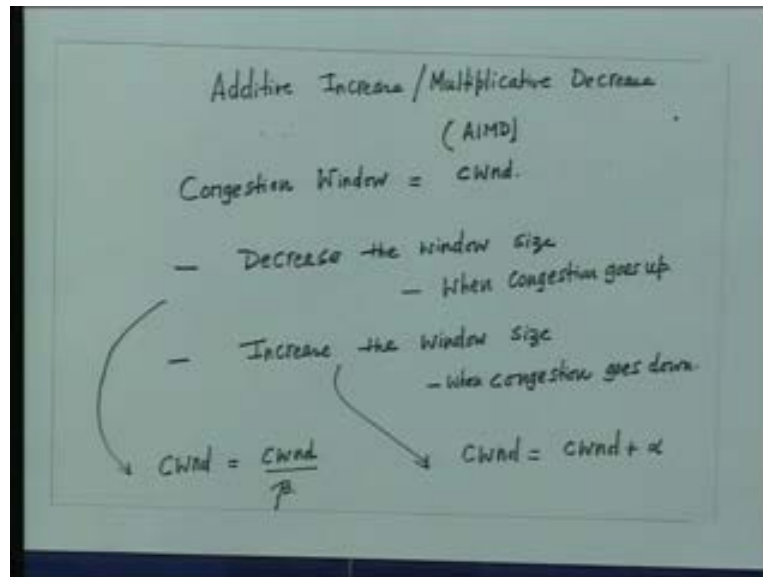 Additive Increase / Multiplicative Decrease
(AIMD]
Congestion Window = CWnd.
— Decrease the window size
— When congestion goes up
— Increase the window size
— when congestion goes down.
CWnd = CWnd / β
CWnd = CWnd + α